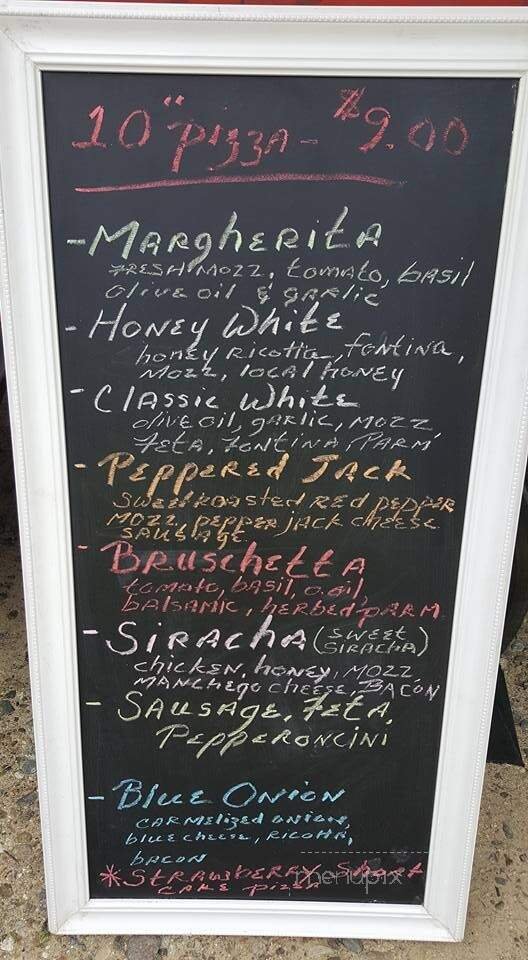 10" pizza - $9.00
- Margherita
Fresh mozz, tomato, basil
olive oil & garlic
- Honey White
honey ricotta, fontina,
mozz, local honey
- Classic White
olive oil, garlic, mozz
feta, fontina, parm
- Peppered Jack
sweet roasted red pepper
mozz, pepper jack cheese
sausage
- Bruschetta
tomato, basil, o.oil,
balsamic, herbed parm
- Siracha (sweet siracha)
chicken, honey, mozz
manchego cheese, bacon
- Sausage, feta,
Pepperoncini
- Blue Onion
carmelized onion,
blue cheese, ricotta,
bacon
*Strawberry Short
cake pizza
menupix